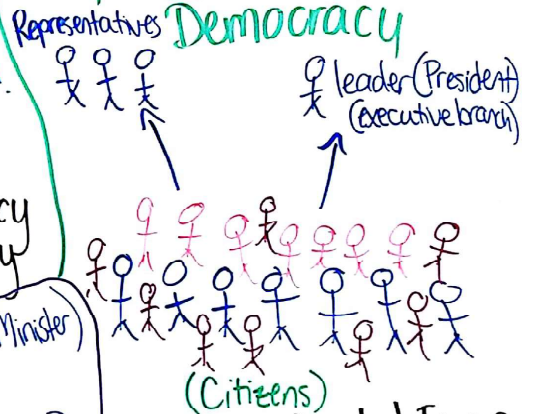 Representatives Democracy
leader (President)
(executive branch)
cy
y
Minister)
(Citizens)